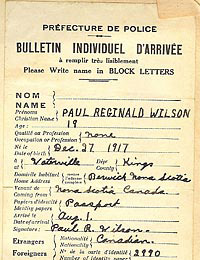 PRÉFECTURE DE POLICE
BULLETIN INDIVIDUEL D'ARRIVÉE
à remplir très lisiblement
Please Write name in BLOCK LETTERS
NOM
NAME
Prénoms
Christian Name PAUL REGINALD WILSON
Age 19
Qualité ou Profession
Occupation or Profession none
Né le
Date of birth Dec. 27 1917
à Waterville Dépt
County Kings
Domicile habituel
Home Address Berwick Nova Scotia
Venant de
Coming from Nova Scotia Canada.
Papiers d'identité
Identity Papers Passport
Date d'arrivée
Date of arrival Aug. 1.
Signature
Signature: Paul R. Wilson.
Etrangers
Foreigners
Nationalité
Nationality Canadian.
Nº de la carte d'identité
Number of identity paper 2990